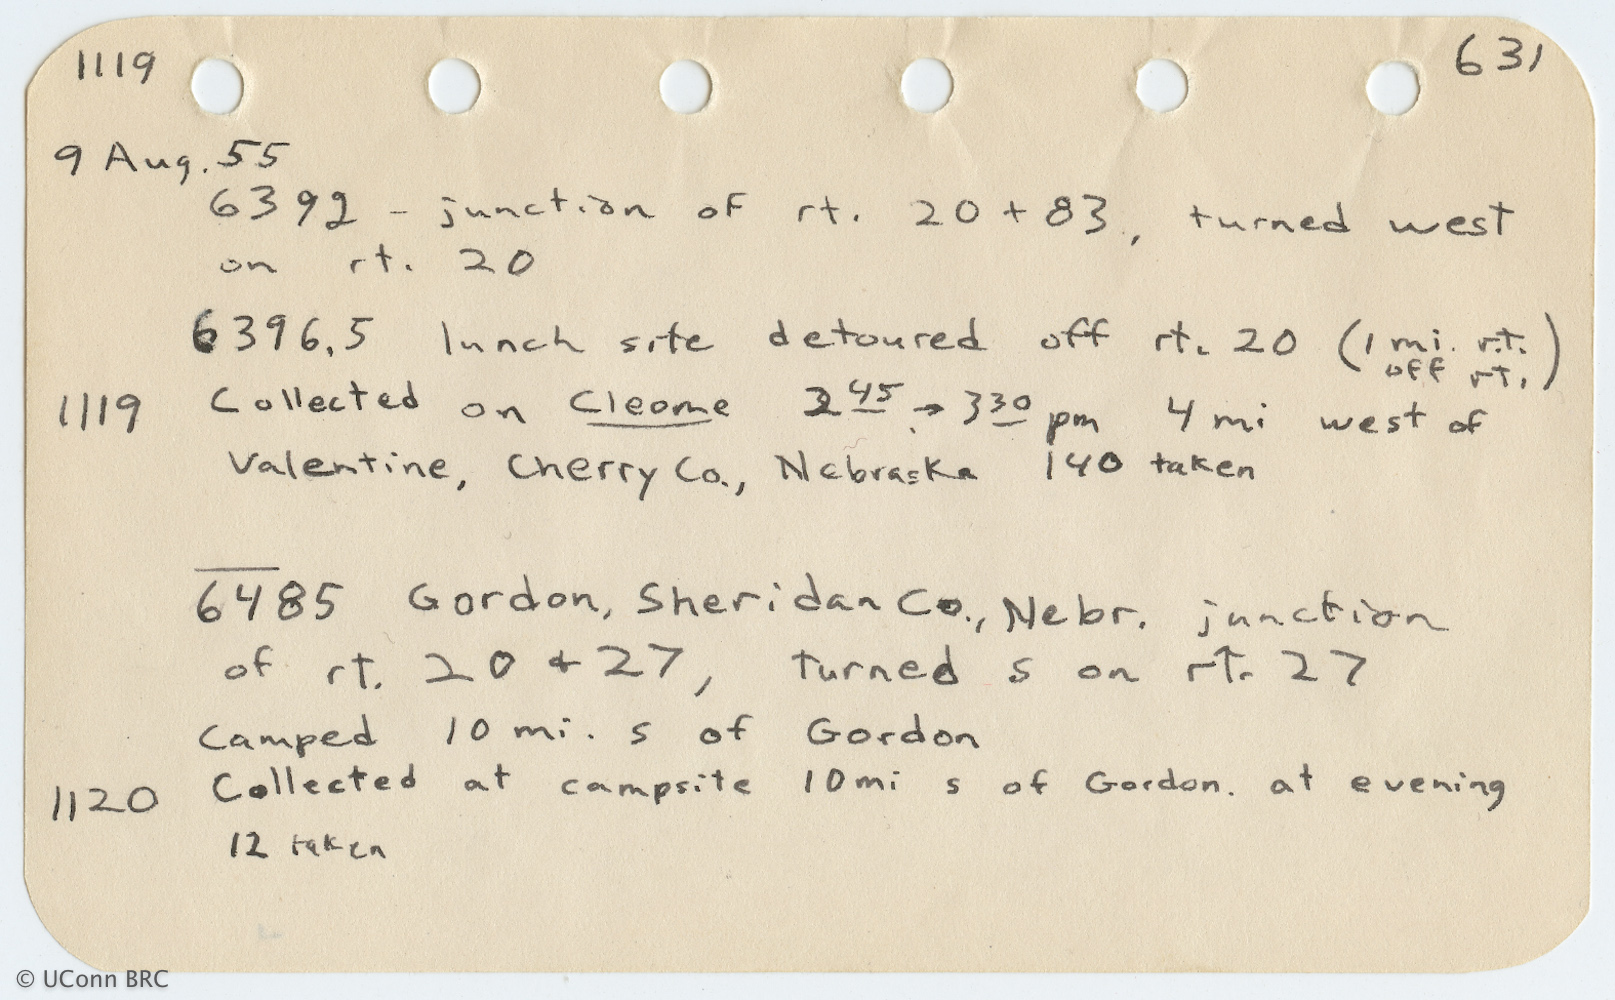 1119 631
9 Aug. 55
6392 - junction of rt. 20 + 83, turned west
on rt. 20
6396.5 lunch site detoured off rt. 20 (1 mi. r.t.
off rt.)
1119 Collected on Cleome 2 45 → 3 30 pm 4 mi west of
Valentine, Cherry Co., Nebraska 140 taken
6485 Gordon, Sheridan Co., Nebr. junction
of rt. 20 + 27, turned s on rt. 27
Camped 10 mi. s of Gordon
1120 Collected at campsite 10 mi s of Gordon. at evening
12 taken
© UConn BRC